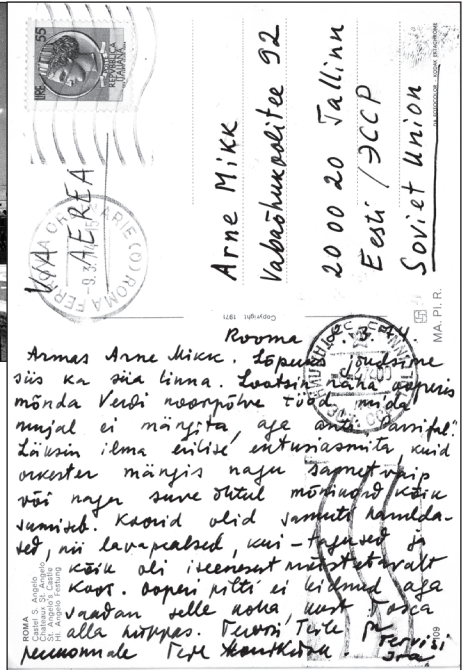 LIRE 55
REPUBBLICA ITALIANA
VIA AEREA
ROMA FERR
Arne Mikk
Vabaõhukoolitee 92
20 00 20 Tallinn
Eesti / ЭССР
Soviet Union
Copyright 1971
MA. PI. R.
Rooma
Armas Arne Mikk. Lõpuks jõudsime
siis ka siia linna. Lootsin näha ooperis
mõnda Verdi noorpõlve tööd mida
mujal ei mängita, aga anti "Parsifal".
Läksin ilma erilise entusiasmita, kuid
orkester mängis nagu samet vaip
või nagu suve õhtul mõni kõik
sumiseb. Koorid olid samuti
sed, nii lavapealsed, kui -tagused ja
kõik oli iseenesest
koos. Ooperi pilti ei leidnud aga
saadan selle koha, kust Tosca
alla hüppas. Tervisi Teile ja
perekonnale Teie
ROMA
Castel S. Angelo
Château St. Angelo
St. Angelo's Castle
Hl. Angelo Festung
109